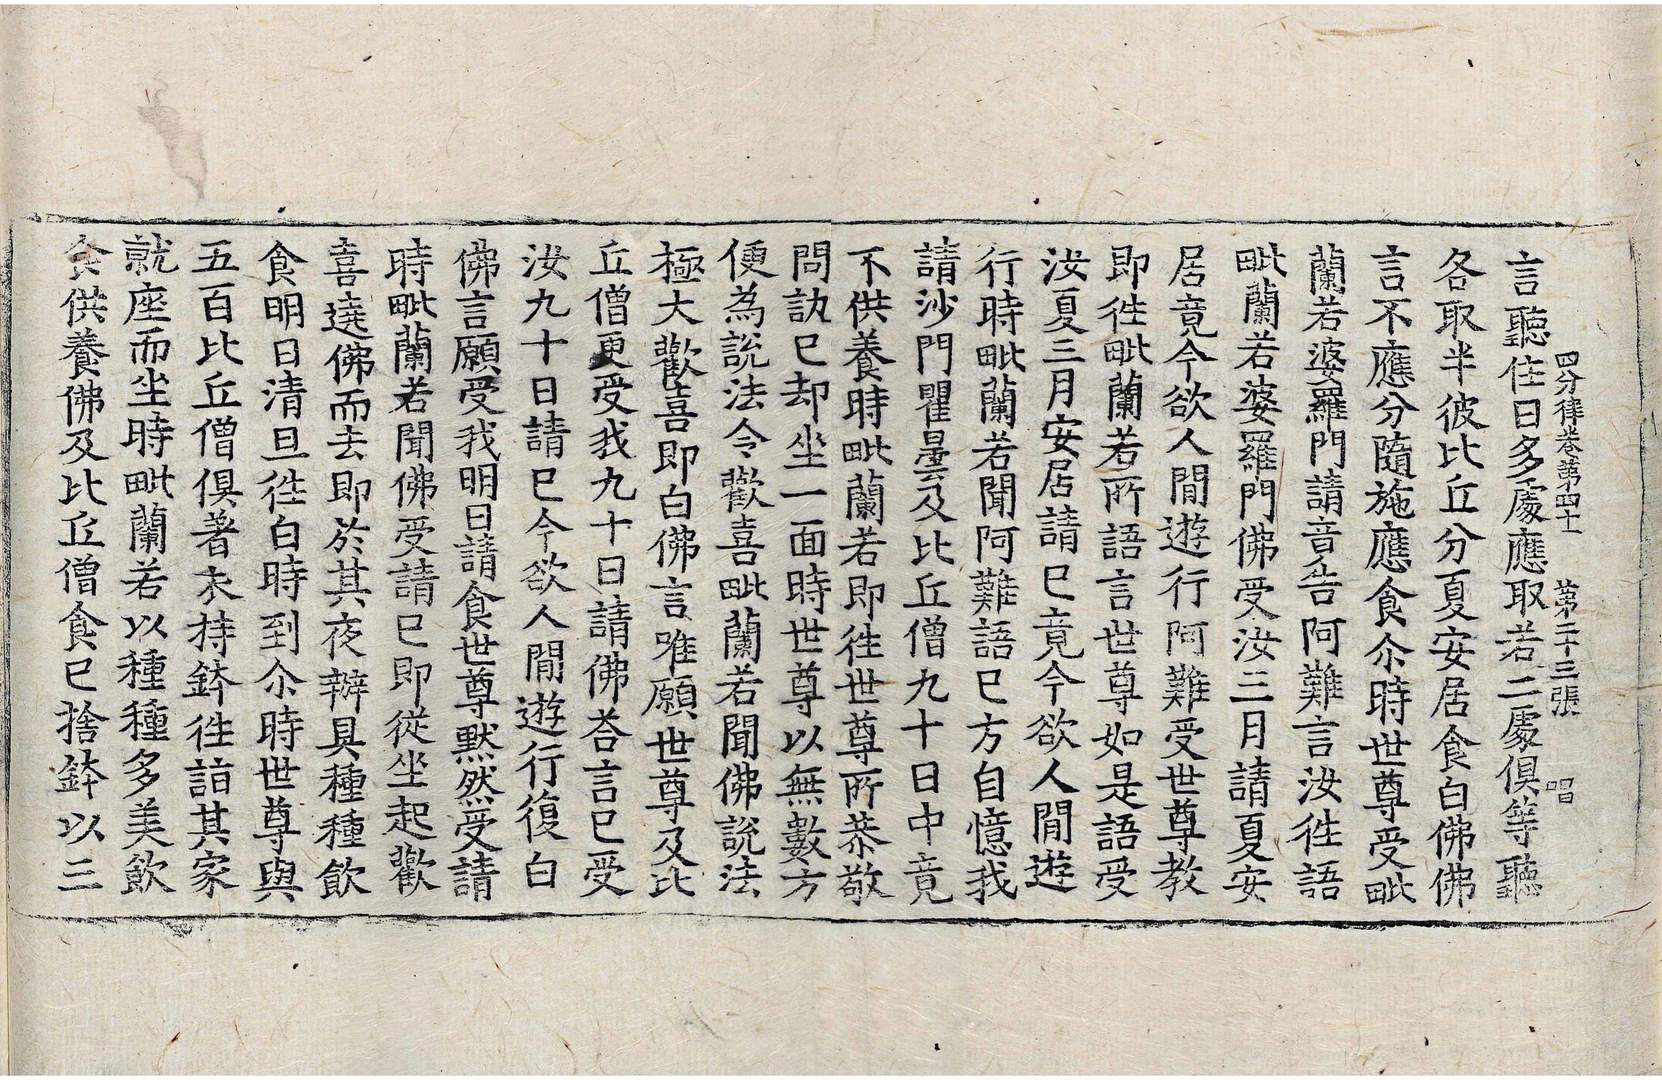 四分律卷第四十 第二十三張 唱
言聽住日多處應取若二處俱等聽
各取半彼比丘分夏安居食白佛佛
言不應分隨施應食尒時世尊受毗
蘭若婆羅門請音告阿難言汝徃語
毗蘭若婆羅門佛受汝三月請夏安
居竟今欲人閒遊行阿難受世尊教
即徃毗蘭若所語言世尊如是語受
汝夏三月安居請已竟今欲人閒遊
行時毗蘭若聞阿難語已方自憶我
請沙門瞿曇及比丘僧九十日中竟
不供養時毗蘭若即徃世尊所恭敬
問訊已却坐一面時世尊以無數方
便為說法令歡喜毗蘭若聞佛說法
極大歡喜即白佛言唯願世尊及比
丘僧更受我九十日請佛荅言已受
汝九十日請已今欲人閒遊行復白
佛言願受我明日請食世尊默然受請
時毗蘭若聞佛受請已即從坐起歡
喜遶佛而去即於其夜辦具種種飲
食明日清旦徃白時到尒時世尊與
五百比丘僧俱著衣持鉢徃詣其家
就座而坐時毗蘭若以種種多美飲
食供養佛及比丘僧食已捨鉢以三